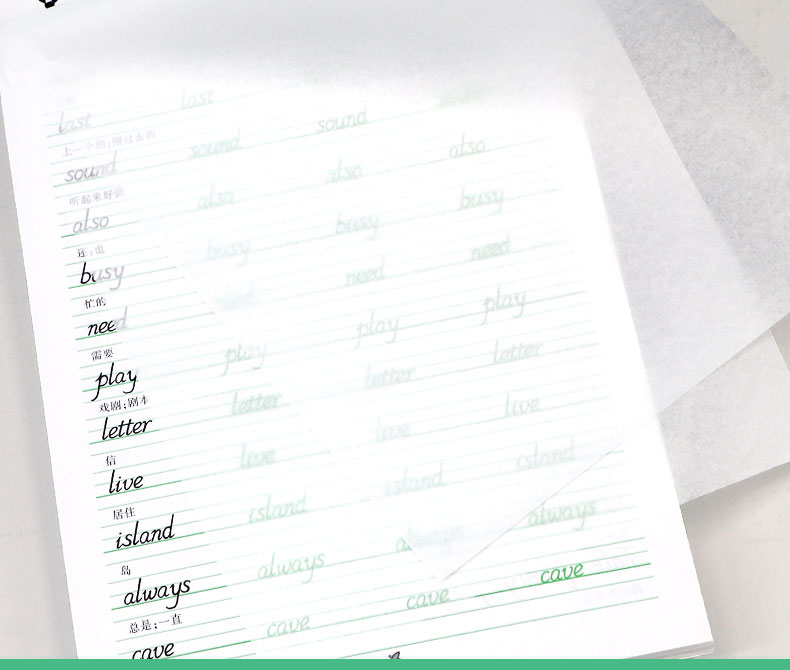 last last
上一个的;刚过去的
sound sound sound
听起来好像
also also also also
还;也
busy busy busy busy
忙的
need need need need
需要
play play play play
戏剧;剧本
letter letter letter letter
信
live live live live
居住
island island island island
岛
always always always always
总是;一直
cave cave cave cave